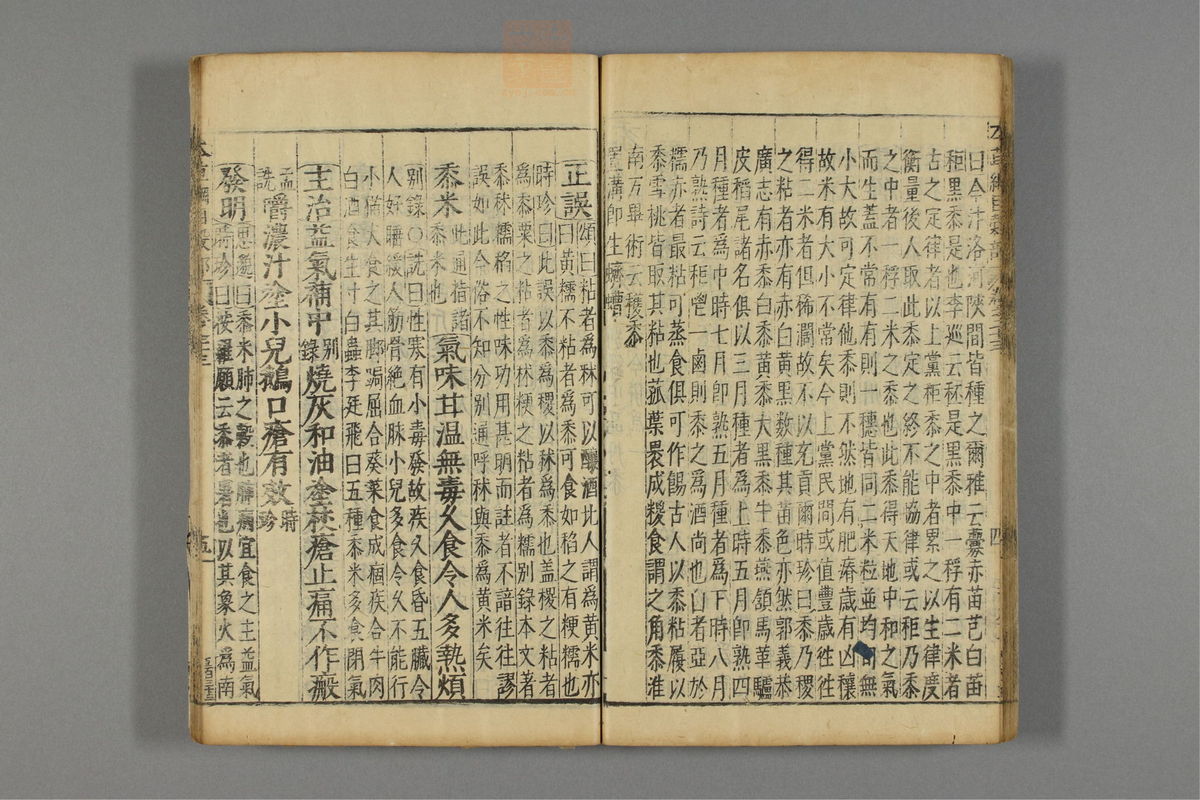 曰今汴洛河陝間皆種之爾雅云虋赤苗芑白苗
秬黑黍是也李廵云秠是黑黍中一稃有二米者
古之定律者以上黨秬黍之中者累之以生律度
衡量後人取此黍定之終不能協律或云秬乃黍
之中者一稃二米之黍也此黍得天地中和之氣
而生蓋不常有有則一穗皆同二米粒並均勻無
小大故可定律他黍則不然地有肥瘠歲有凶穰
故米有大小不常矣今上黨民間或值豐歲徃徃
得二米者但稀濶故不以充貢爾時珍曰黍乃稷
之粘者亦有赤白黃黑數種其苗色亦然郭義恭
廣志有赤黍白黍黃黍大黑黍牛黍燕頷馬革驢
皮稻尾諸名俱以三月種者爲上時五月即熟四
月種者爲中時七月即熟五月種者爲下時八月
乃熟詩云秬鬯一卣則黍之爲酒尚也白者亞於
糯赤者最粘可蒸食俱可作餳古人以黍粘履以
黍雪桃皆取其粘也菰葉褁成糉食謂之角黍淮
南万畢術云穫黍
置溝即生蠐螬
四
正誤 頌曰粘者爲秫可以釀酒北人謂爲黃米亦
曰黃糯不粘者爲黍可食如稻之有粳糯也
時珍曰此誤以黍爲稷以秫爲黍也盖稷之粘者
爲黍粟之粘者爲秫粳之粘者爲糯別錄本文著
黍秫糯稻之性味功用甚明而註者不諳往往謬
誤如此今俗不知分別通呼秫與黍爲黃米矣
黍米 此通指諸黍米也 氣味甘温無毒久食令人多熱煩
別錄○詵曰性寒有小毒發故疾久食昏五臟令
人好睡緩人筋骨絶血脉小兒多食令久不能行
小猫犬食之其脚跼屈合葵菜食成痼疾合牛肉
白酒食生寸白蟲李廷飛曰五種黍米多食閉氣
主治益氣補中 別錄 燒灰和油塗杖瘡止痛不作瘢
孟詵 嚼濃汁塗小兒鵝口瘡有效 時珍
發明 思邈曰黍米肺之榖也肺病宜食之主益氣
時珍曰按羅願云黍者暑也以其象火爲南
五